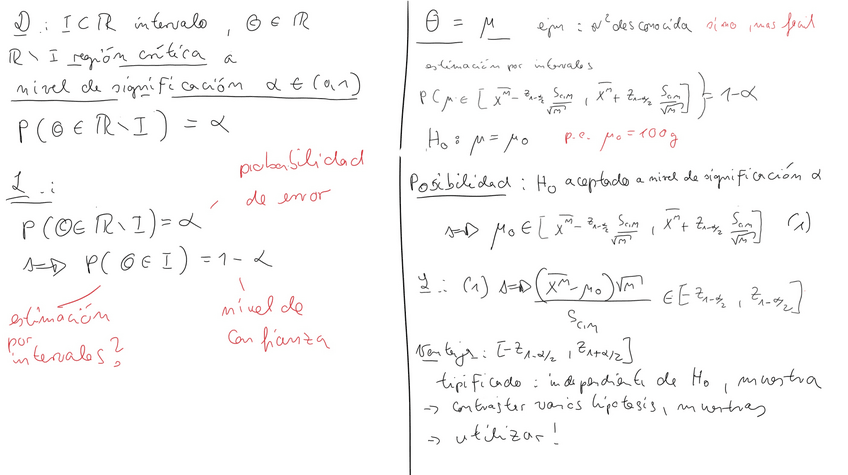 D.: I ⊂ ℝ intervalo, Θ ∈ ℝ
ℝ \ I región crítica a
nivel de significación α ∈ (0,1)
P(Θ ∈ ℝ \ I) = α
probabilidad
de error
L.:
P(Θ ∈ ℝ \ I) = α
⇔ P(Θ ∈ I) = 1 - α
estimación
por
intervalos?
nivel de
confianza
Θ = μ ejm: σ² desconocida sino, mas facil
estimación por intervalos
P(μ ∈ [x̄ᵐ - z₁₋α/₂ S_c,m/√m, x̄ᵐ + z₁₋α/₂ S_c,m/√m]) = 1 - α
H₀: μ = μ₀ p.e. μ₀ = 100g
Posibilidad: H₀ aceptado a nivel de significación α
⇔ μ₀ ∈ [x̄ᵐ - z₁₋α/₂ S_c,m/√m, x̄ᵐ + z₁₋α/₂ S_c,m/√m] (1)
L.: (1) ⇔ (x̄ᵐ - μ₀)√m / S_c,m ∈ [-z₁₋α/₂, z₁₋α/₂]
Ventaja: [-z₁₋α/₂, z₁₊α/₂]
tipificado: independiente de H₀, muestra
→ contraster varios hipotesis, muestras
→ utilizar!